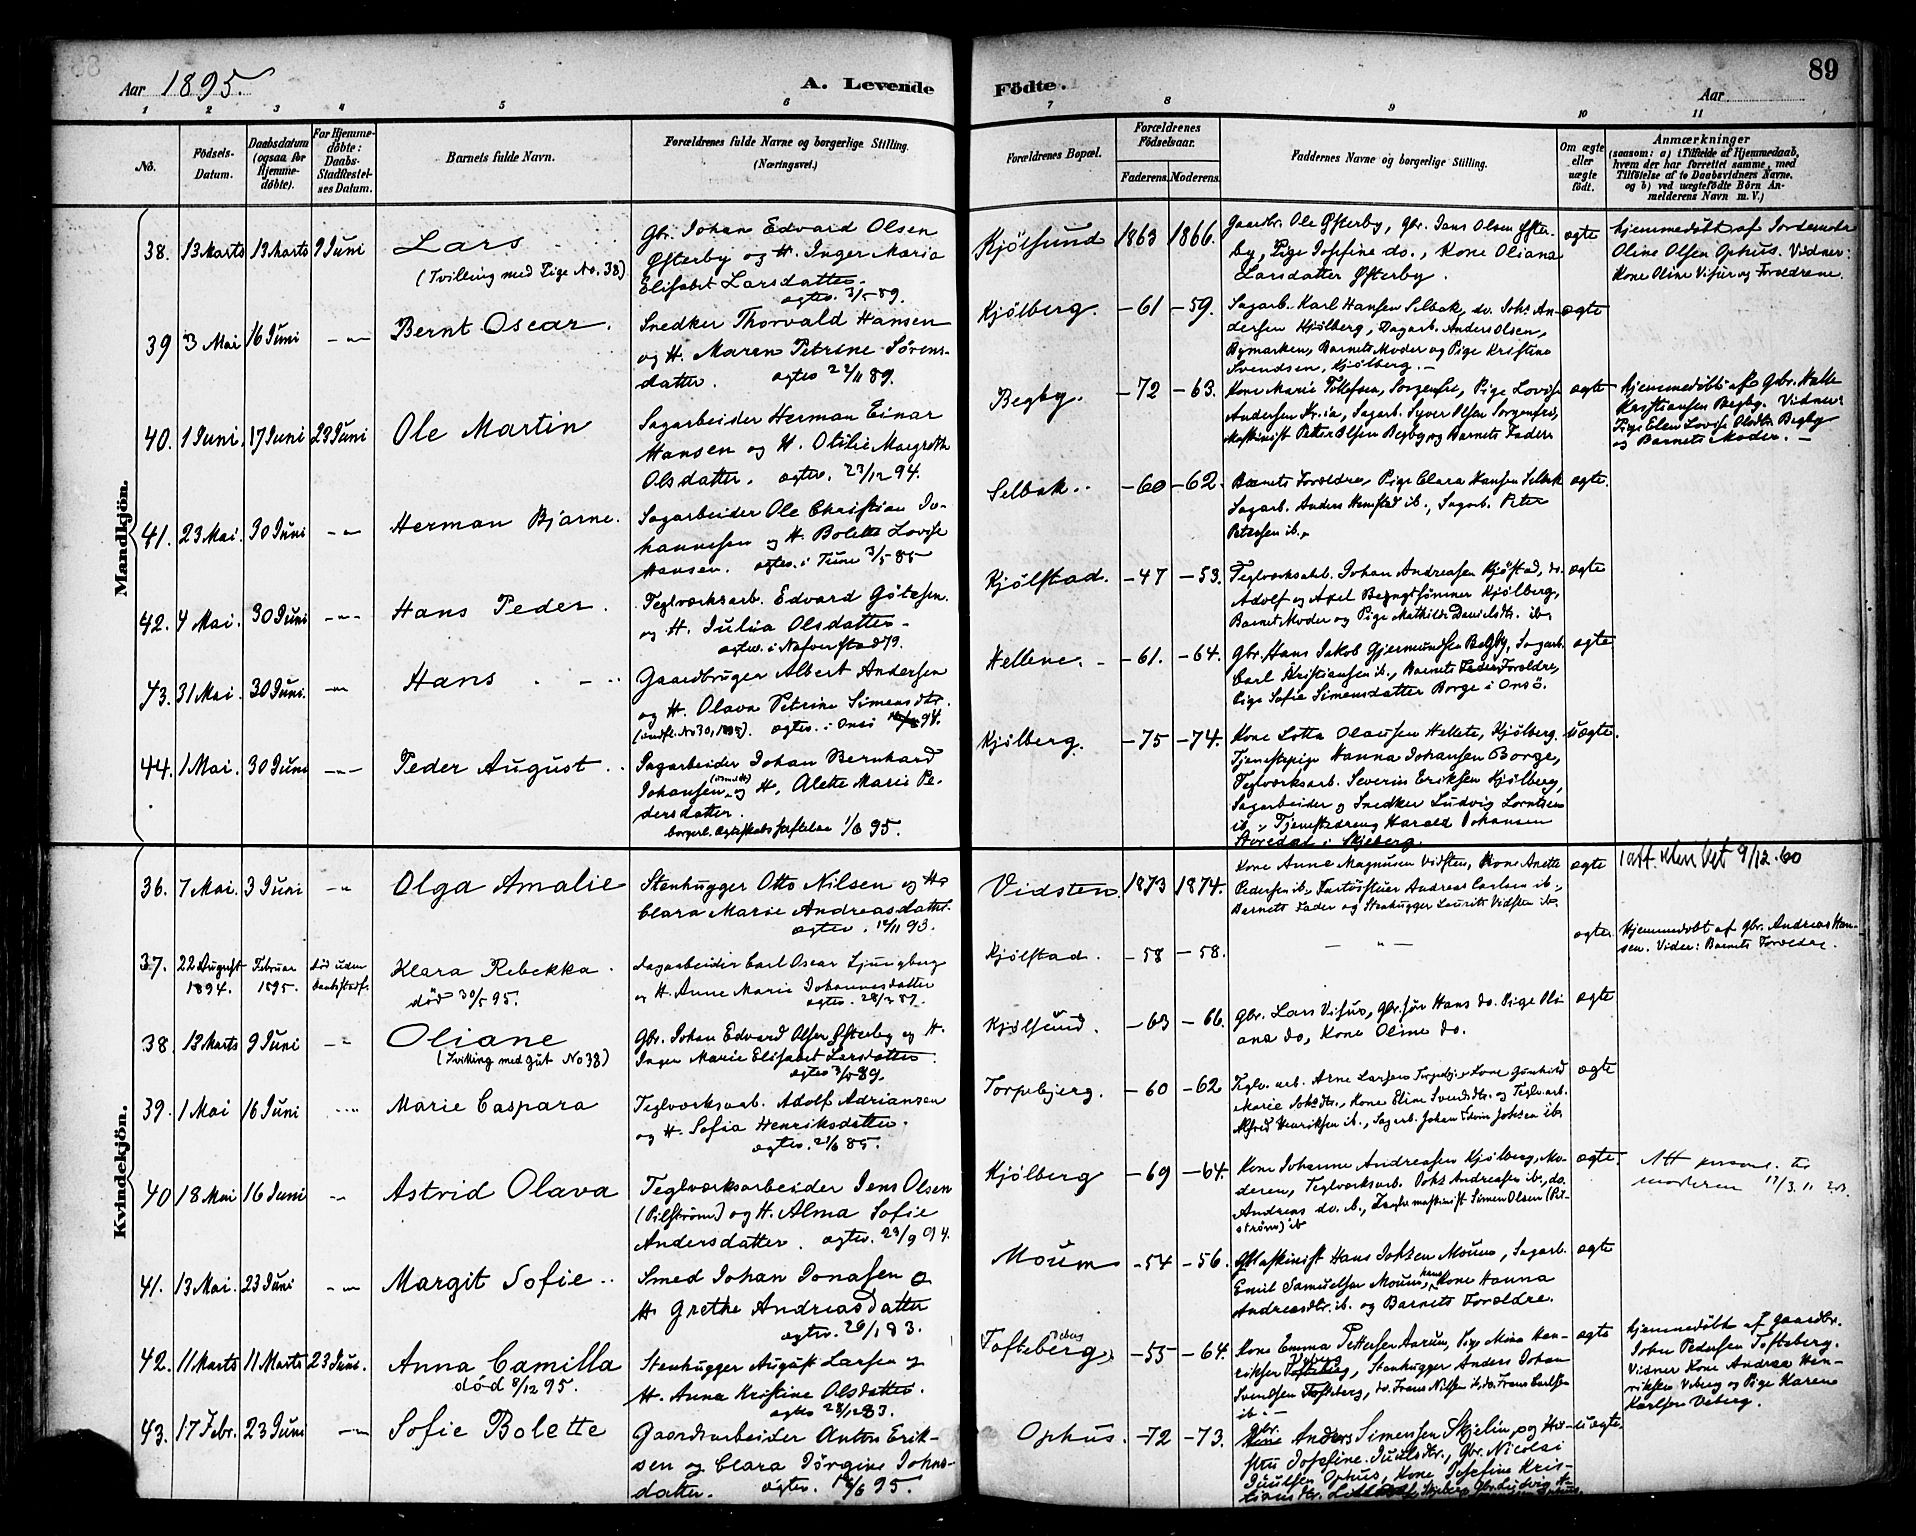 89
Aar 1895.
A. Levende
Födte.
Aar
1 2 3 4 5 6 7 8 9 10 11
No.
Födsels-Datum.
Daabsdatum (ogsaa for Hjemmedöbte).
For Hjemmedöbte: Daabs-Stadfestelses Datum.
Barnets fulde Navn.
Forældrenes fulde Navne og borgerlige Stilling. (Næringsvei.)
Forældrenes Bopæl.
Forældrenes Födselsaar.
Faderens. Moderens.
Faddernes Navne og borgerlige Stilling.
Om ægte eller uægte födt.
Anmærkninger
(saasom: a) i Tilfælde af Hjemmedaab, hvem der har forrettet samme, med Tilföielse af to Daabsvidners Navne, og b) ved uægtefödte Börn Anmelderens Navn m. V.)
Mandkjön.
38. 13 Marts 13 Marts 9 Juni
Lars
(Tvilling med Pige No. 38)
Gbr. Johan Edvard Olsen
Østerby og H. Inger Maria
Elisabet Larsdatter.
ægtev. 3/5 89.
Kjølsund 1863 1866.
Gaardbr. Ole Østerby, Gbr. Jens Olsen Øster-
by, Pige Josefine do., Kone Oliana
Larsdatter Østerby.
ægte
Hjemmedøbt af Jordemoder
Oline Olsen Ophus. Vidner:
Kone Oline Visur og Forældrene.
39 3 Mai 16 Juni
Bernt Oscar.
Snedker Thorvald Hansen
og H. Maren Petrine Sørens-
datter. ægtev 22/11 89.
Kjølberg. -61 -59.
Sagarb. Karl Hansen Selbak, do. Johs An-
dersen Kjølberg, Dagarb. Anders Olsen,
Bymarken, Barnets Moder og Pige Kristine
Svendsen, Kjølberg.
ægte
40. 1 Juni. 17 Juni 29 Juni
Ole Martin
Sagarbeider Herman Einar
Hansen og H. Otilie Margrethe
Olsdatter. ægtev. 23/12 94.
Begby. -72 -63.
Kone Marie Tollefsen, Sorgenfri, Pige Lovise
Andersen, Sagarb. Syver Olsen Sorgenfri,
Maskinist Petter Olsen Begby og Barnets Fader.
ægte
Hjemmedøbt af Gbr. Halle
Kristiansen Begby. Vidner:
Pige Elen Lovise Olsdtr. Begby
og Barnets Moder.
41. 23 Mai. 30 Juni
Herman Bjarne.
Sagarbeider Ole Christian Jo-
hannesen og H. Bolette Lovise
Hansen. ægtev. i Tune 3/5 85
Selbak. -60 -62.
Barnets Forældre, Pige Clara Hansen Selbak
Sagarb. Anders Hemstad ib., Sagarb. Peter
Petersen ib.
ægte.
42. 4 Mai. 30 Juni
Hans Peder.
Teglværksarb. Edvard Götesen
og H. Julia Olsdatter
ægtev. i Nafverstad 79.
Kjølstad. -47 -53.
Teglværksarb. Johan Andreasen Kjølstad, do.
Adolf og Axel Kjølberg,
Barnets Moder og Pige Mathilde Danielsdtr. ib.
ægte
43. 31 Mai. 30 Juni.
Hans
Gaardbruger Albert Andersen
og H. Olava Petrine Simensdtr.
(indfl. No 30, 1895). ægtev. i Onsø 94.
Hellene. -61. -64.
Gbr. Hans Jakob Gjermundsen Begby, Sagarb.
Carl Kristiansen ib., Barnets Forældre,
Pige Sofie Simensdatter Borge i Onsö.
ægte
44. 1 Mai. 30 Juni
Peder August
Sagarbeider Johan Bernhard
Johansen og H. Alette Marie Pe-
dersdatter.
borgerl. Ægteskabs stiftelse 1/6 95.
Kjølberg. -75 -74.
Kone Lotta Olausen Hellete, Kjølberg
Tjenestepige Hanna Johansen Borge,
Teglværksarb. Severin Eriksen Kjølberg,
Sagarbeider og Snedker Ludvig Lorntsen
ib., Tjenestedreng Harald Johansen
Storedal i Skjeberg.
Uægte.
Kvindekjön.
36. 7 Mai. 3 Juni
Olga Amalie
Stenhugger Otto Nilsen og H.
Clara Marie Andreasdatter.
ægtev. 12/11 93.
Vidsten. 1873 1874.
Kone Anne Magnusen Vidsten, Kone Anette
Pedersen ib., Andreas Carlsen ib.,
Barnets Fader og Stenhugger Laurits Vidsten ib.
ægte
9/12.60
37. 22 August 1894. Februar 1895. død uden daabsstadf.
Klara Rebekka.
død 30/5 95.
Sagarbeider Carl Oscar Ljungberg
og H. Anne Marie Johannesdatter
Kjølstad. -58 -58.
ægte
Hjemmedøbt af Gbr. Andreas Han-
sen. Vidner: Barnets Forældre.
38. 13 Marts 9 Juni
Oliane
(Tvilling med Gut No 38)
Gbr. Johan Edvard Olsen Østerby og H.
Inger Marie Elisabet Larsdatter.
ægtev 3/5 89.
Kjølsund. -63 -66.
Gbr. Lars Visur, Gbr. søn Hans do. Pige Oli-
ana do, Kone Oline do.
ægte
39. 1 Mai 16 Juni
Marie Caspara
Teglværksarb. Adolf Adriansen
og H. Sofia Henriksdatter.
Torpebjerg. -60 -62
Teglv. arb. Arne Larsen Torpebj., Kone Gunhild
Marie Johsdtr., Kone Eline Svendsdtr. og Teglv.arb.
Alfred Henriksen ib., Sagarb. Johan Edvin Johsen ib.
ægte
40 18 Mai 16 Juni
Astrid Olava
Teglværksarbeider Jens Olsen
(Pilstrøm) og H. Alma Sofie
Andersdatter. ægtev. 23/9 94.
Kjølberg -69 -64.
Kone Johanne Andreasen Kjølberg, Mo-
deren, Teglværksarb. Johs Andreasen ib., do.
Andreas do. ib., maskinist Simen Olsen (Pil-
strøm) ib
ægte.
Att til
moderen 17/3.11
41. 13 Mai. 23 Juni
Margit Sofie
Smed Johan Jonasen og
H. Grethe Andreasdatter
ægtev. 26/1 83.
Moum -54 -56.
Maskinist Hans Johsen Moum, Sagarb.
Emil Samuelsen Moum, Kone Hanna
Andreasdtr. ib. og Barnets Forældre.
ægte
42. 11 Marts 11 Marts 23 Juni.
Anna Camilla
død 8/12 95.
Stenhugger August Larsen og
H. Anna Kristine Olsdatter.
ægtev 28/12 83.
Tofteberg -55 -64.
Kone Emma Pettersen Aarum, Pige Mina Hen-
riksen Viberg, Stenhugger Anders Johan
Svendsen Tofteberg, do. Frans Nilsen ib, do. Frans Carlsen
ib.
ægte
Hjemmedøbt af Gaardbr.
John Pedersen Tofteberg.
Vidner Kone Andrea Hen-
riksen Viberg og Pige Karen
Karlsen Viberg.
43. 17 Febr. 23 Juni
Sofie Bolette
Gaardsarbeider Anton Erik-
sen og Clara Jørgine Johns-
datter. ægtev. 95.
Ophus. -72 -73.
Gbr. Anders Simensen Skjelin, og Hu-
stru Josefine Juulsdtr., Gbr. Nicolai
Juulsen Ophus, Kone Josefine Kris-
uægte.